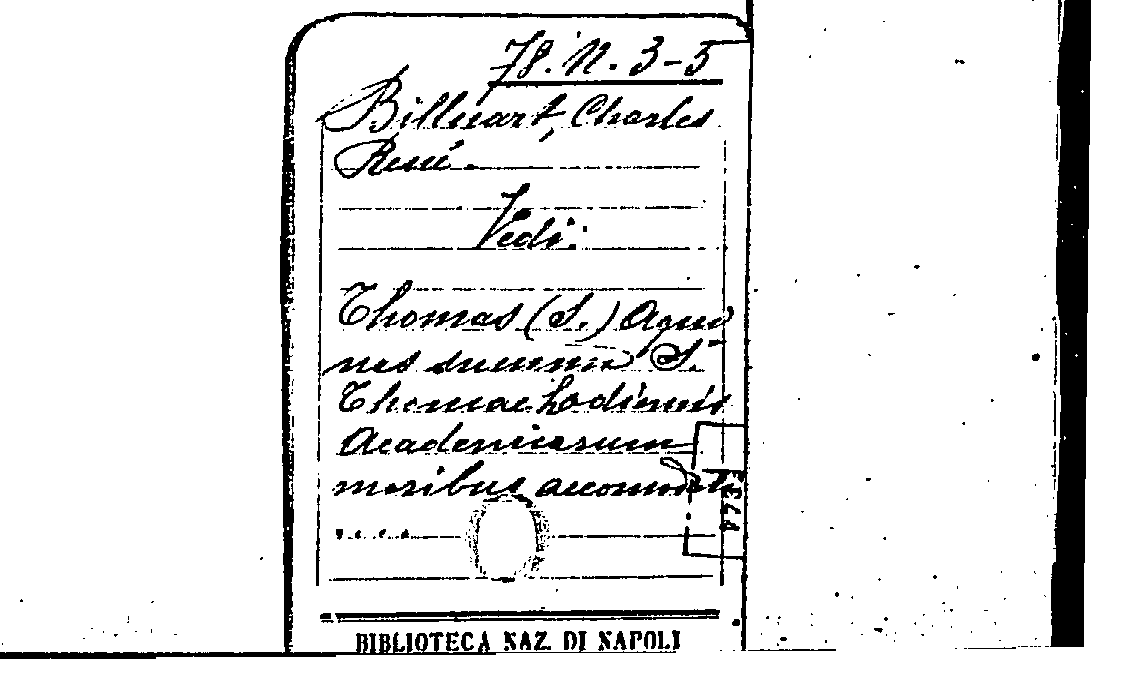 78. N. 3-5
Billuart, Charles
René.
Vedi:
Thomas (S.) Aqui
nas summa S.
Thomae hodiernis
Academiarum
moribus accomoda
....
BIBLIOTECA NAZ. DI NAPOLI